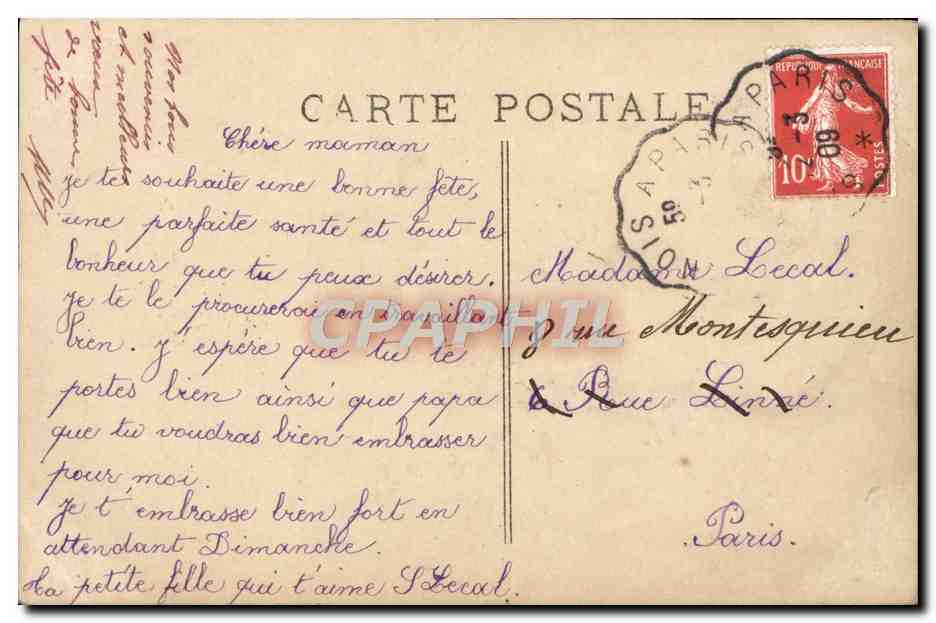 Nos bons
souvenirs
et meilleurs
vœux
de bonne
fête
CARTE POSTALE
Chére maman
Je te souhaite une bonne fête,
une parfaite santé et tout le
bonheur que tu peux désirer.
Je te le procurerai en travaillant
bien. J'éspére que tu te
portes bien ainsi que papa
que tu voudras bien embrasser
pour moi.
Je t'embrasse bien fort en
attendant Dimanche.
Ta petite fille qui t'aime S Lecal.
Madame Lecal.
8 rue Montesquieu
6 Rue Linné.
Paris.
REPUBLIQUE FRANÇAISE
10
POSTES
A PARIS
2-3
09
A PARIS
5º
CPAPHIL